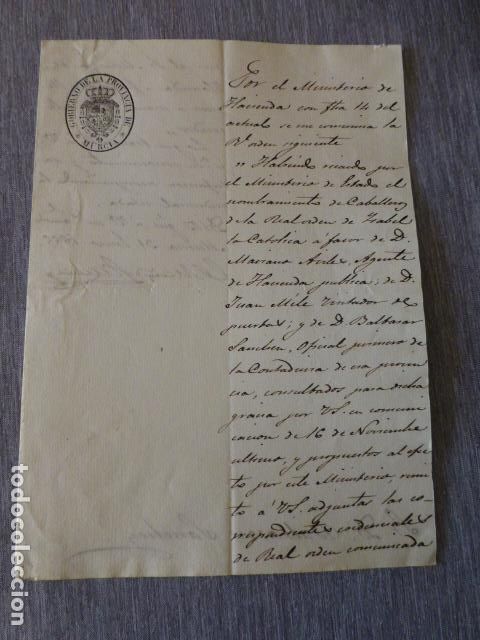 GOBIERNO DE LA PROVINCIA DE
MURCIA
Por el Ministerio de
Hacienda con fha 14 del
actual se me comunica la
Rl orden siguiente
" Habiendo recaido por
el Ministerio de Estado el
nombramiento de Caballeros
de la Real orden de Isabel
la Catolica á favor de D.
Mariano Aviles, Agente
de Hacienda publica; de D.
Juan Mele Visitador de
puertas; y de D. Baltasar
Sanchez, Oficial primero de
la Contaduria de esa provin
cia, consultados para dicha
gracia por VS. en comuni
cacion de 16 de Noviembre
ultimo, y propuestos al efec
to por este Ministerio, remi
to á VS. adjuntas las co-
rrespondientes credenciales
de Real orden comunicada
todocoleccion